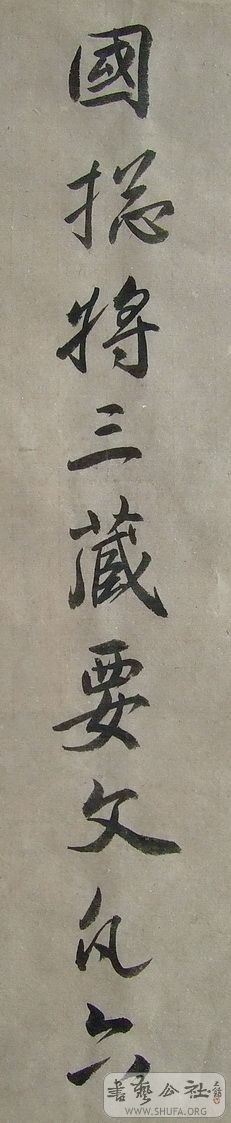 國揔將三藏要文凡六
書藝公社
WWW.SHUFA.ORG